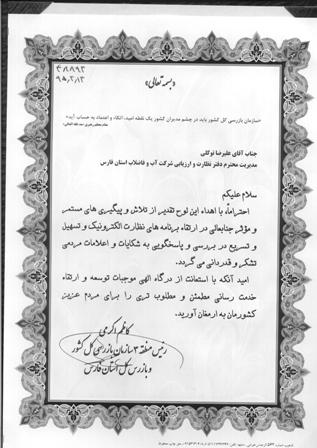 ۴۰۸۹۳
۹۵,۲,۱۳
«بسمه تعالی»
«سازمان بازرسی کل کشور باید در چشم مدیران کشور یک نقطه امید، اتکاء و اعتماد به حساب آید.»
جناب آقای علیرضا توکلی
مدیریت محترم دفتر نظارت و ارزیابی شرکت آب و فاضلاب استان فارس
سلام علیکم
احتراماً، با اهداء این لوح تقدیر از تلاش و پیگیری های مستمر
و مؤثر جنابعالی در ارتقاء برنامه های نظارت الکترونیک و تسهیل
و تسریع در بررسی و پاسخگویی به شکایات و اعلامات مردمی
تشکر و قدردانی می گردد.
امید آنکه با استعانت از درگاه الهی موجبات توسعه و ارتقاء
خدمت رسانی مطمئن و مطلوب تری را برای مردم عزیز
کشورمان به ارمغان آورید.
کاظم اکرمی
رئیس منطقه ۳ سازمان بازرسی کل کشور
و بازرس کل استان فارس